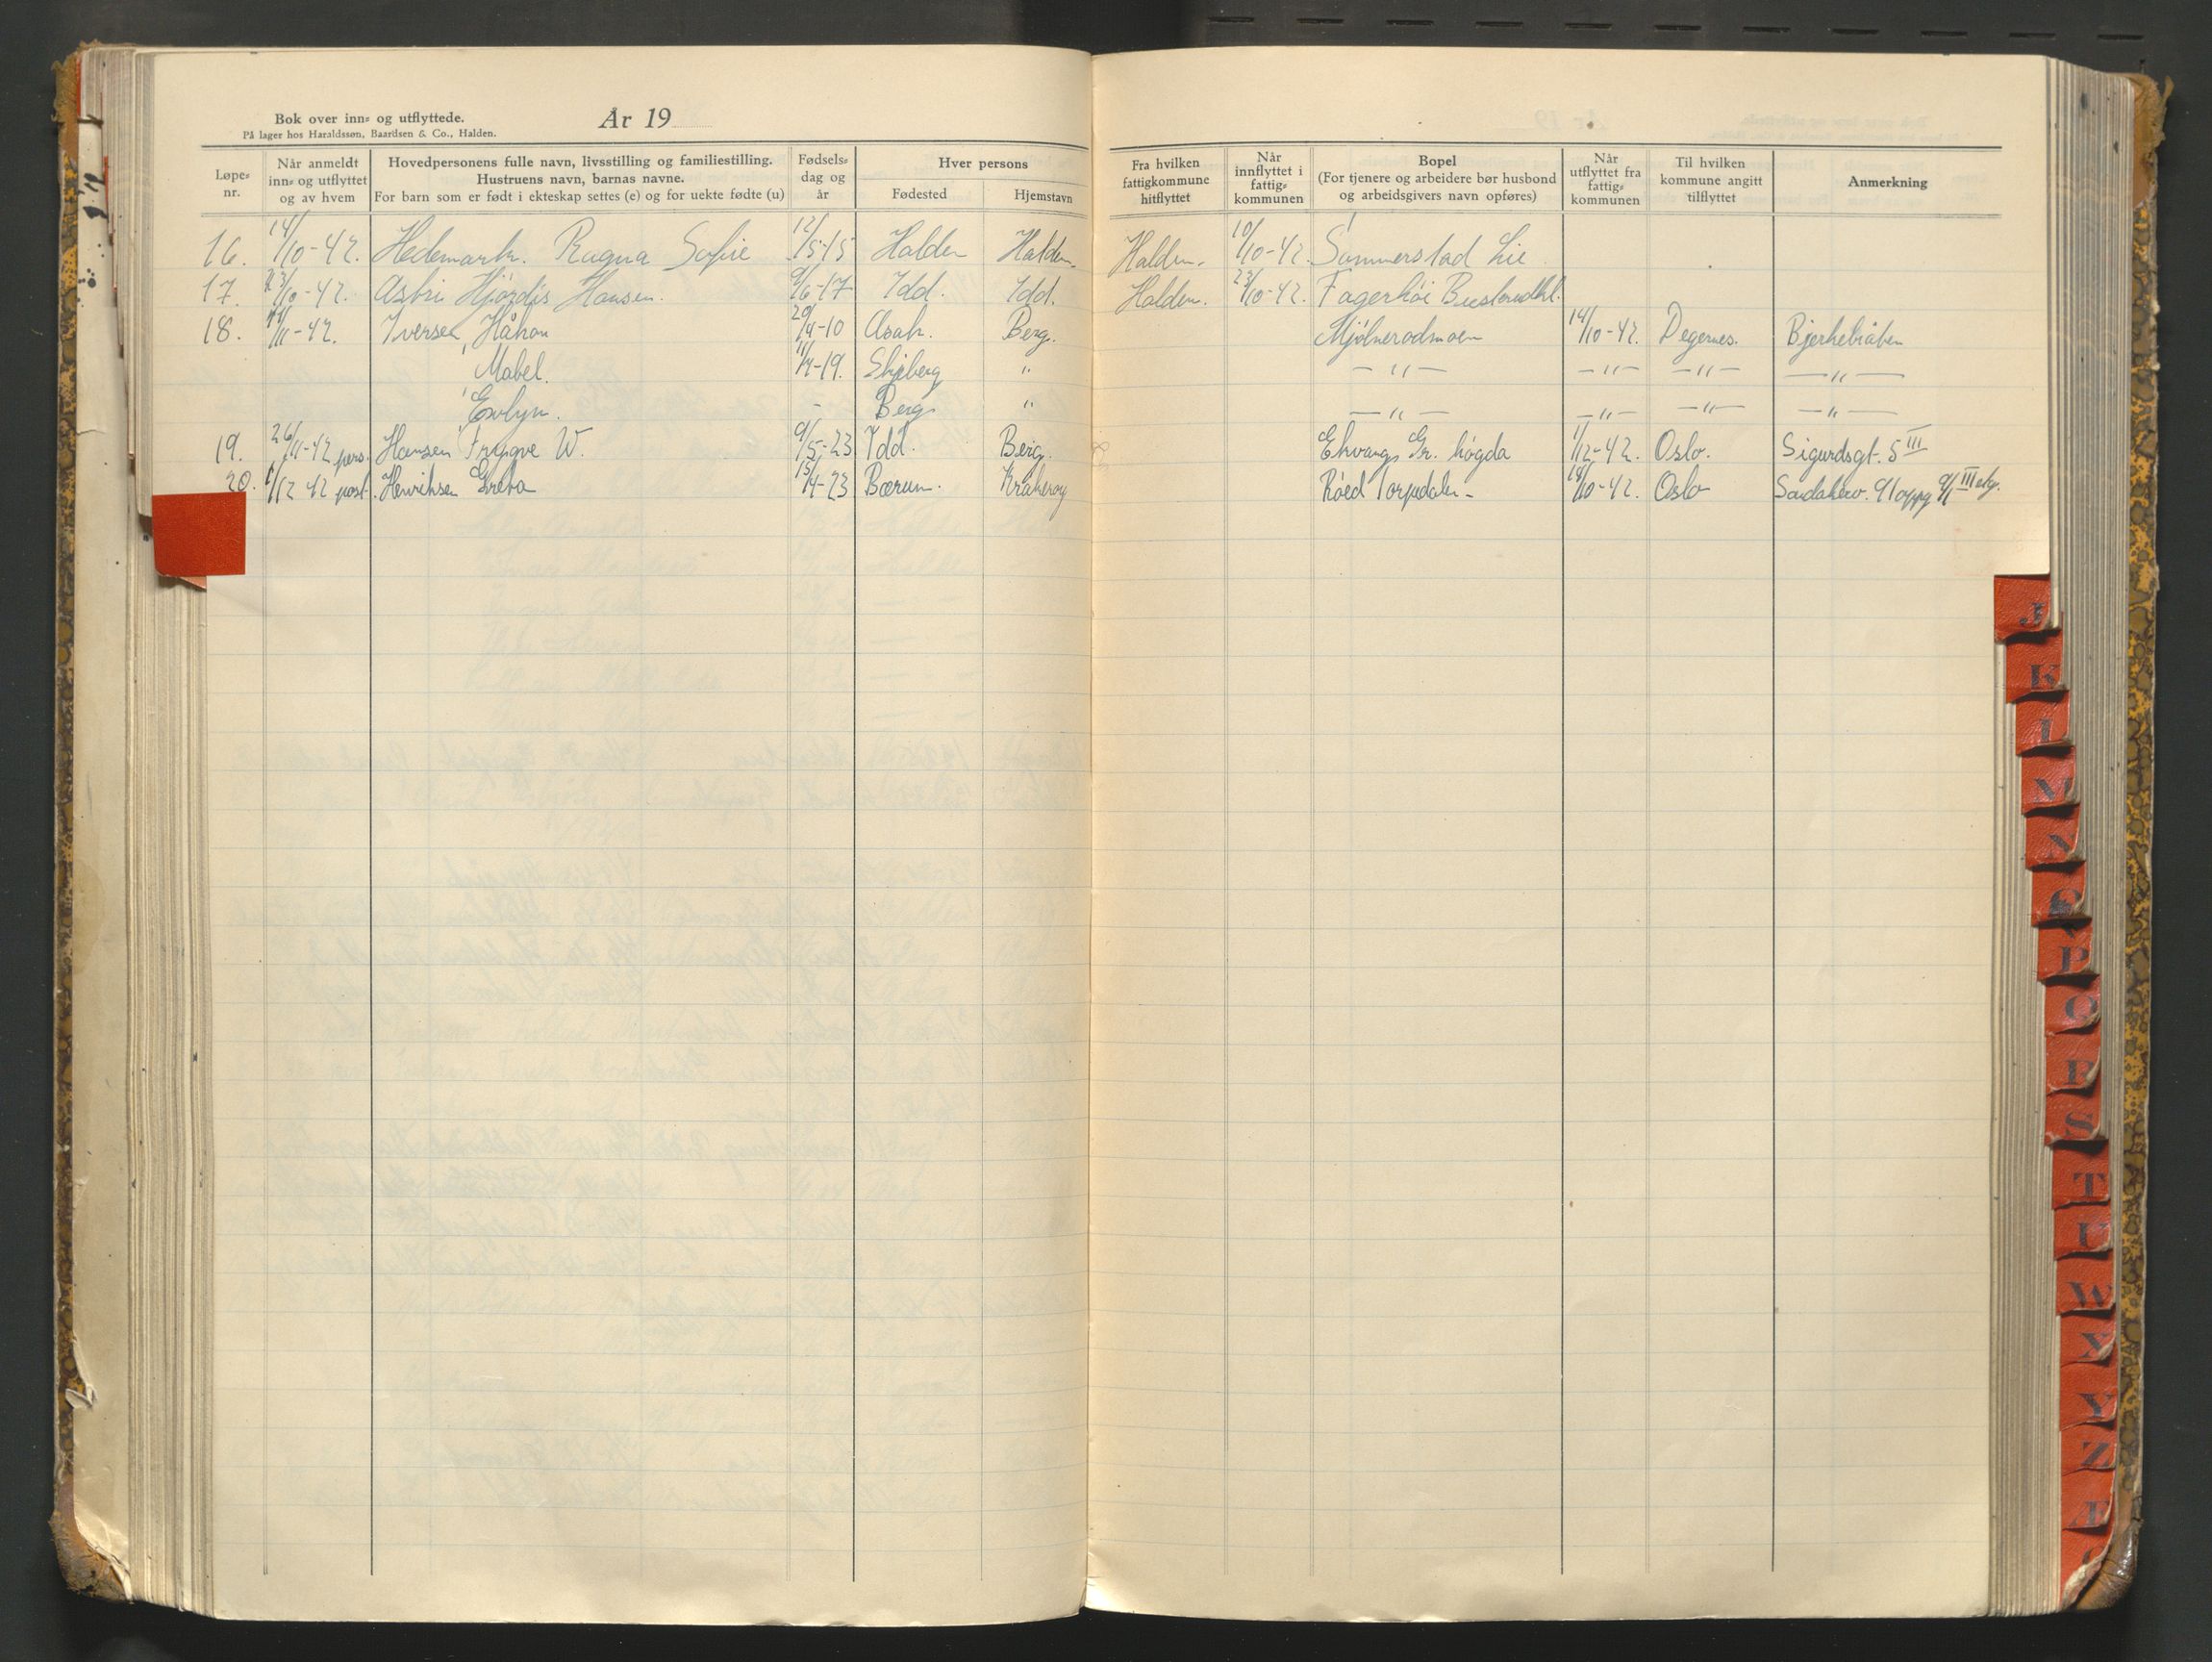 Bok over inn- og utflyttede.
På lager hos Haraldssøn, Baardsen & Co., Halden.
År 19
Løpe-nr.
Når anmeldt inn- og utflyttet og av hvem
Hovedpersonens fulle navn, livsstilling og familiestilling.
Hustruens navn, barnas navne.
For barn som er født i ekteskap settes (e) og for uekte fødte (u)
Fødsels-dag og år
Hver persons
Fødested
Hjemstavn
Fra hvilken fattigkommune hitflyttet
Når innflyttet i fattig-kommunen
Bopel
(For tjenere og arbeidere bør husbond og arbeidsgivers navn opføres)
Når utflyttet fra fattig-kommunen
Til hvilken kommune angitt tilflyttet
Anmerkning
16. 14/10-42. Hedemark. Ragna Sofie 12/5-15 Halden Halden. Halden. 10/10-42. Sommerstad Lie
17. 23/10-42. Hjørdis Hansen. 9/6-17 Idd. Idd. Halden. 23/10-42. Fagerhøi
18. /11-42. Iversen, Håkon 20/4-10 Asak. Berg. Mjølnerødmoen 14/10-42. Degernes. Bjerkebråten
" Mabel. 11/4-19. Skjeberg " — " — — " — — " — — " —
" Evelyn. - Berg " — " — — " — — " — — " —
19. 26/11-42 pers. Hansen Trygve W. 9/5-23 Idd. Berg. høgda 1/12-42. Oslo. Sigurdsgt. 5 III
20. 1/12 42 post. Henriksen Greta 15/4-23 Bærum. Kråkerøy Røed Torpedalen - 18/10-42. Oslo 9/1 III etg.
J
K
L
M
N
O
P
Q
R
S
T
U
W
X
Y
Z
Æ